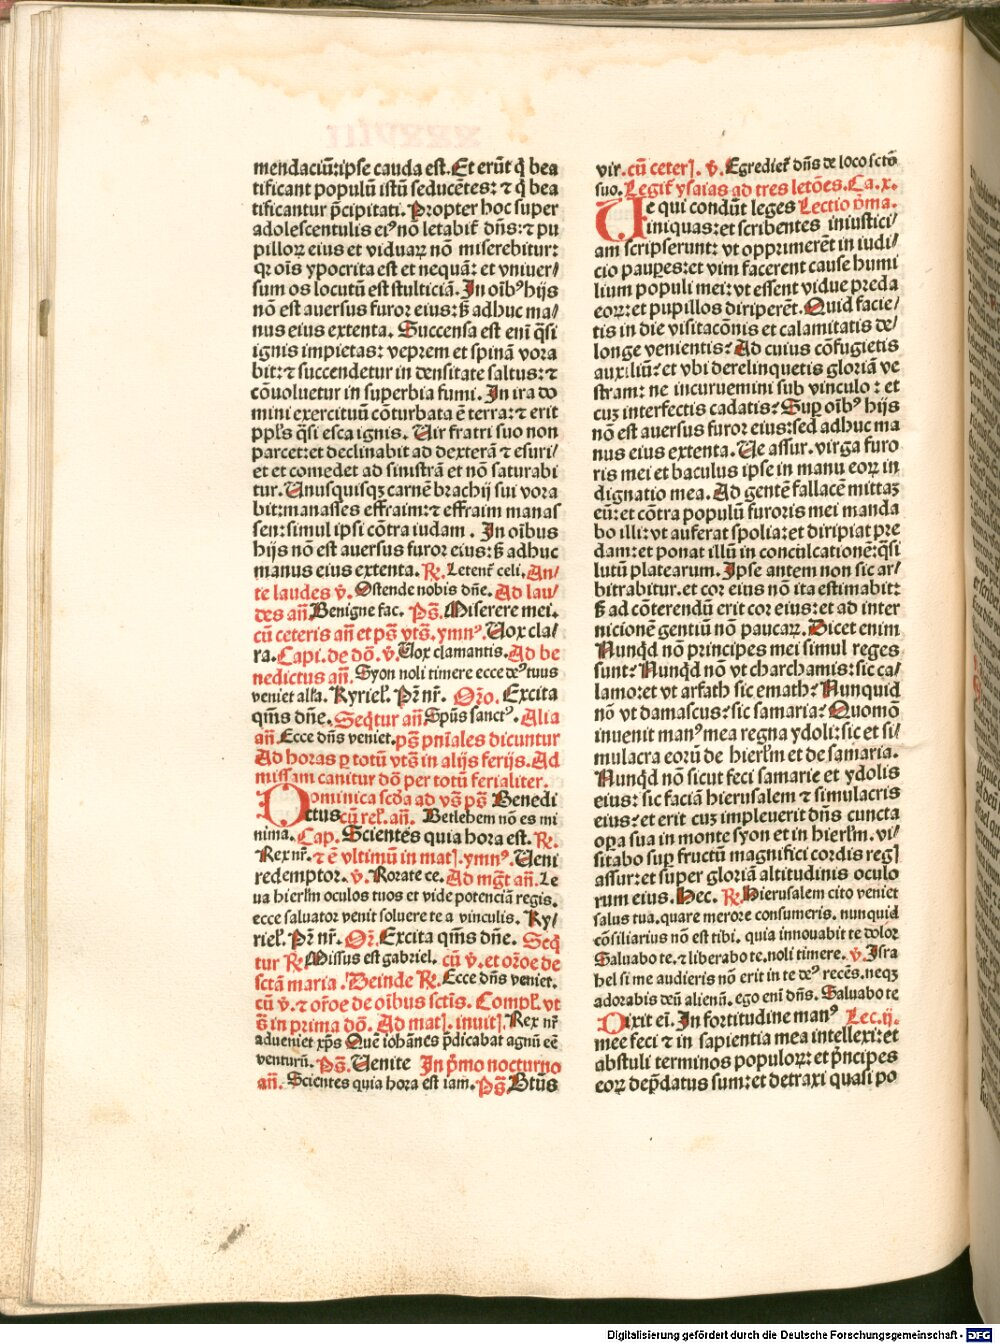 mendaciū: ipse cauda est. Et erūt q̇ bea
tificant populū istū seducētes: ⁊ q̇ bea
tificantur p̄cipitati. Propter hoc super
adolescentulis eiꝰ nō letabit̃ dn̄s: ⁊ pu
pilloꝝ eius et viduaꝝ nō miserebitur:
qꝛ oīs ypocrita est et nequā: et vniuer/
sum os locutū est stulticiā. In oībꝰ hijs
nō est auersus furor eius: ß adhuc ma/
nus eius extenta. Succensa est enī q̄si
ignis impietas: veprem et spinā vora
bit: ⁊ succendetur in densitate saltus: ⁊
cōuoluetur in superbia fumi. In ira do
mini exercituū cōturbata ē terra: ⁊ erit
ppl̄s q̄si esca ignis. Uir fratri suo non
parcet: et declinabit ad dexterā ⁊ esuri/
et et comedet ad sinistrā et nō saturabi
tur. Unusquisqꝫ carnē brachij sui vora
bit: manasses effraim: ⁊ effraim manas
sen: simul ipsi cōtra iudam. In oībus
hijs nō est auersus furor eius: ß adhuc
manus eius extenta. ℟. Letent̃ celi. An/
te laudes v̄. Ostende nobis dn̄e. Ad lau/
des an̄ Benigne fac. Ps̄. Miserere mei.
cū ceteris an̄ et ps̄ vts̄. ymnꝰ. Uox cla/
ra. Capi. de dō. v̄. Uox clamantis. Ad be
nedictus an̄. Syon noli timere ecce deꝰ tuus
veniet alla. Kyriel̄. Pr̄ nr̄. Or̄o. Excita
qm̄s dn̄e. Seq̄tur an̄ Spūs sanctꝰ. Alia
an̄ Ecce dn̄s veniet. ps̄ pn̄iales dicuntur
Ad horas p totū vts̄ in alijs ferijs. Ad
missam canitur dō per totū ferialiter.
Dominica scd̄a ad vs̄ ps̄ Benedi
ctus cū rel̄. an̄. Betlehem nō es mi
nima. Cap. Scientes quia hora est. ℟.
Rex nr̄. ⁊ ē vltimū in matꝭ. ymnꝰ. Ueni
redemptor. v̄. Rorate ce. Ad mgt̄ an̄. Le
ua hierlm̄ oculos tuos et vide potenciā regis.
ecce saluator venit soluere te a vinculis. Ky/
riel̄. Pr̄ nr̄. Or̄. Excita qm̄s dn̄e. Seq̄
tur ℟ Missus est gabriel. cū v̄. et or̄oe de
sctā maria. Deinde ℟. Ecce dn̄s veniet.
cū v̄. ⁊ or̄oe de oībus sctīs. Compl̄. vt
s̄ in prima dō. Ad matꝭ. inuitꝭ. Rex nr̄
adueniet xp̄s Quē ioh̄anes p̄dicabat agnū eē
venturū. Ps̄. Uenite In p̄mo nocturno
an̄. Scientes quia hora est iam. Ps̄. Btūs
vir. cū ceterꝭ. v̄. Egrediet̃ dn̄s de loco sctō
suo. Legit̃ ysaias ad tres letōes. Ca. x.
Ue qui condūt leges Lectio p̄ma.
iniquas: et scribentes iniustici/
am scripserunt: vt opprimerēt in iudi/
cio paup̲es: et vim facerent cause humi
lium populi mei: vt essent vidue preda
eoꝝ: et pupillos diriperēt. Quid facie/
tis in die visitacōnis et calamitatis de/
longe venientis? Ad cuius cōfugietis
auxiliū? et vbi derelinquetis gloriā ve
stram: ne incuruemini sub vinculo: et
cuꝫ interfectis cadatis? Sup̲ oībꝰ hijs
nō est auersus furor eius: sed adhuc ma
nus eius extenta. Ue assur. virga furo
ris mei et baculus ipse in manu eoꝝ in
dignatio mea. Ad gentē fallacē mittaꝫ
eū: et cōtra populū furoris mei manda
bo illi: vt auferat spolia: et diripiat pre
dam: et ponat illū in conculcationē: q̄si
lutū platearum. Ipse autem non sic ar/
bitrabitur. et cor eius nō ita estimabit:
ß ad cōterendū erit cor eius: et ad inter
nicionē gentiū nō paucaꝝ. Dicet enim
Nunq̇d nō principes mei simul reges
sunt? Nunq̇d nō vt charchamis: sic ca/
lamo: et vt arfath sic emath? Nunquid
nō vt damascus? sic samaria? Quomō
inuenit manꝰ mea regna ydoli: sic et si/
mulacra eorū de hierl̄m et de samaria.
Nunq̇d nō sicut feci samarie et ydolis
eius: sic faciā hierusalem ⁊ simulacris
eius? et erit cuꝫ impleuerit dn̄s cuncta
op̲a sua in monte syon et in hierl̄m. vi/
sitabo sup̲ fructū magnifici cordis regꝭ
assur: et super gloriā altitudinis oculo
rum eius. Hec. ℟. Hierusalem cito veniet
salus tua. quare merore consumeris. nunquid
cōsiliarius nō est tibi. quia innouabit te dolor
Saluabo te. ⁊ liberabo te. noli timere. v̄. Isra
hel si me audieris nō erit in te deꝰ recēs. neqꝫ
adorabis deū alienū. ego enī dn̄s. Saluabo te
Dixit eī. In fortitudine manꝰ Lec. ij.
mee feci ⁊ in sapientia mea intellexi: et
abstuli terminos populoꝝ: et p̄ncipes
eoꝝ dep̄datus sum: et detraxi quasi po
Digitalisierung gefördert durch die Deutsche Forschungsgemeinschaft - DFG